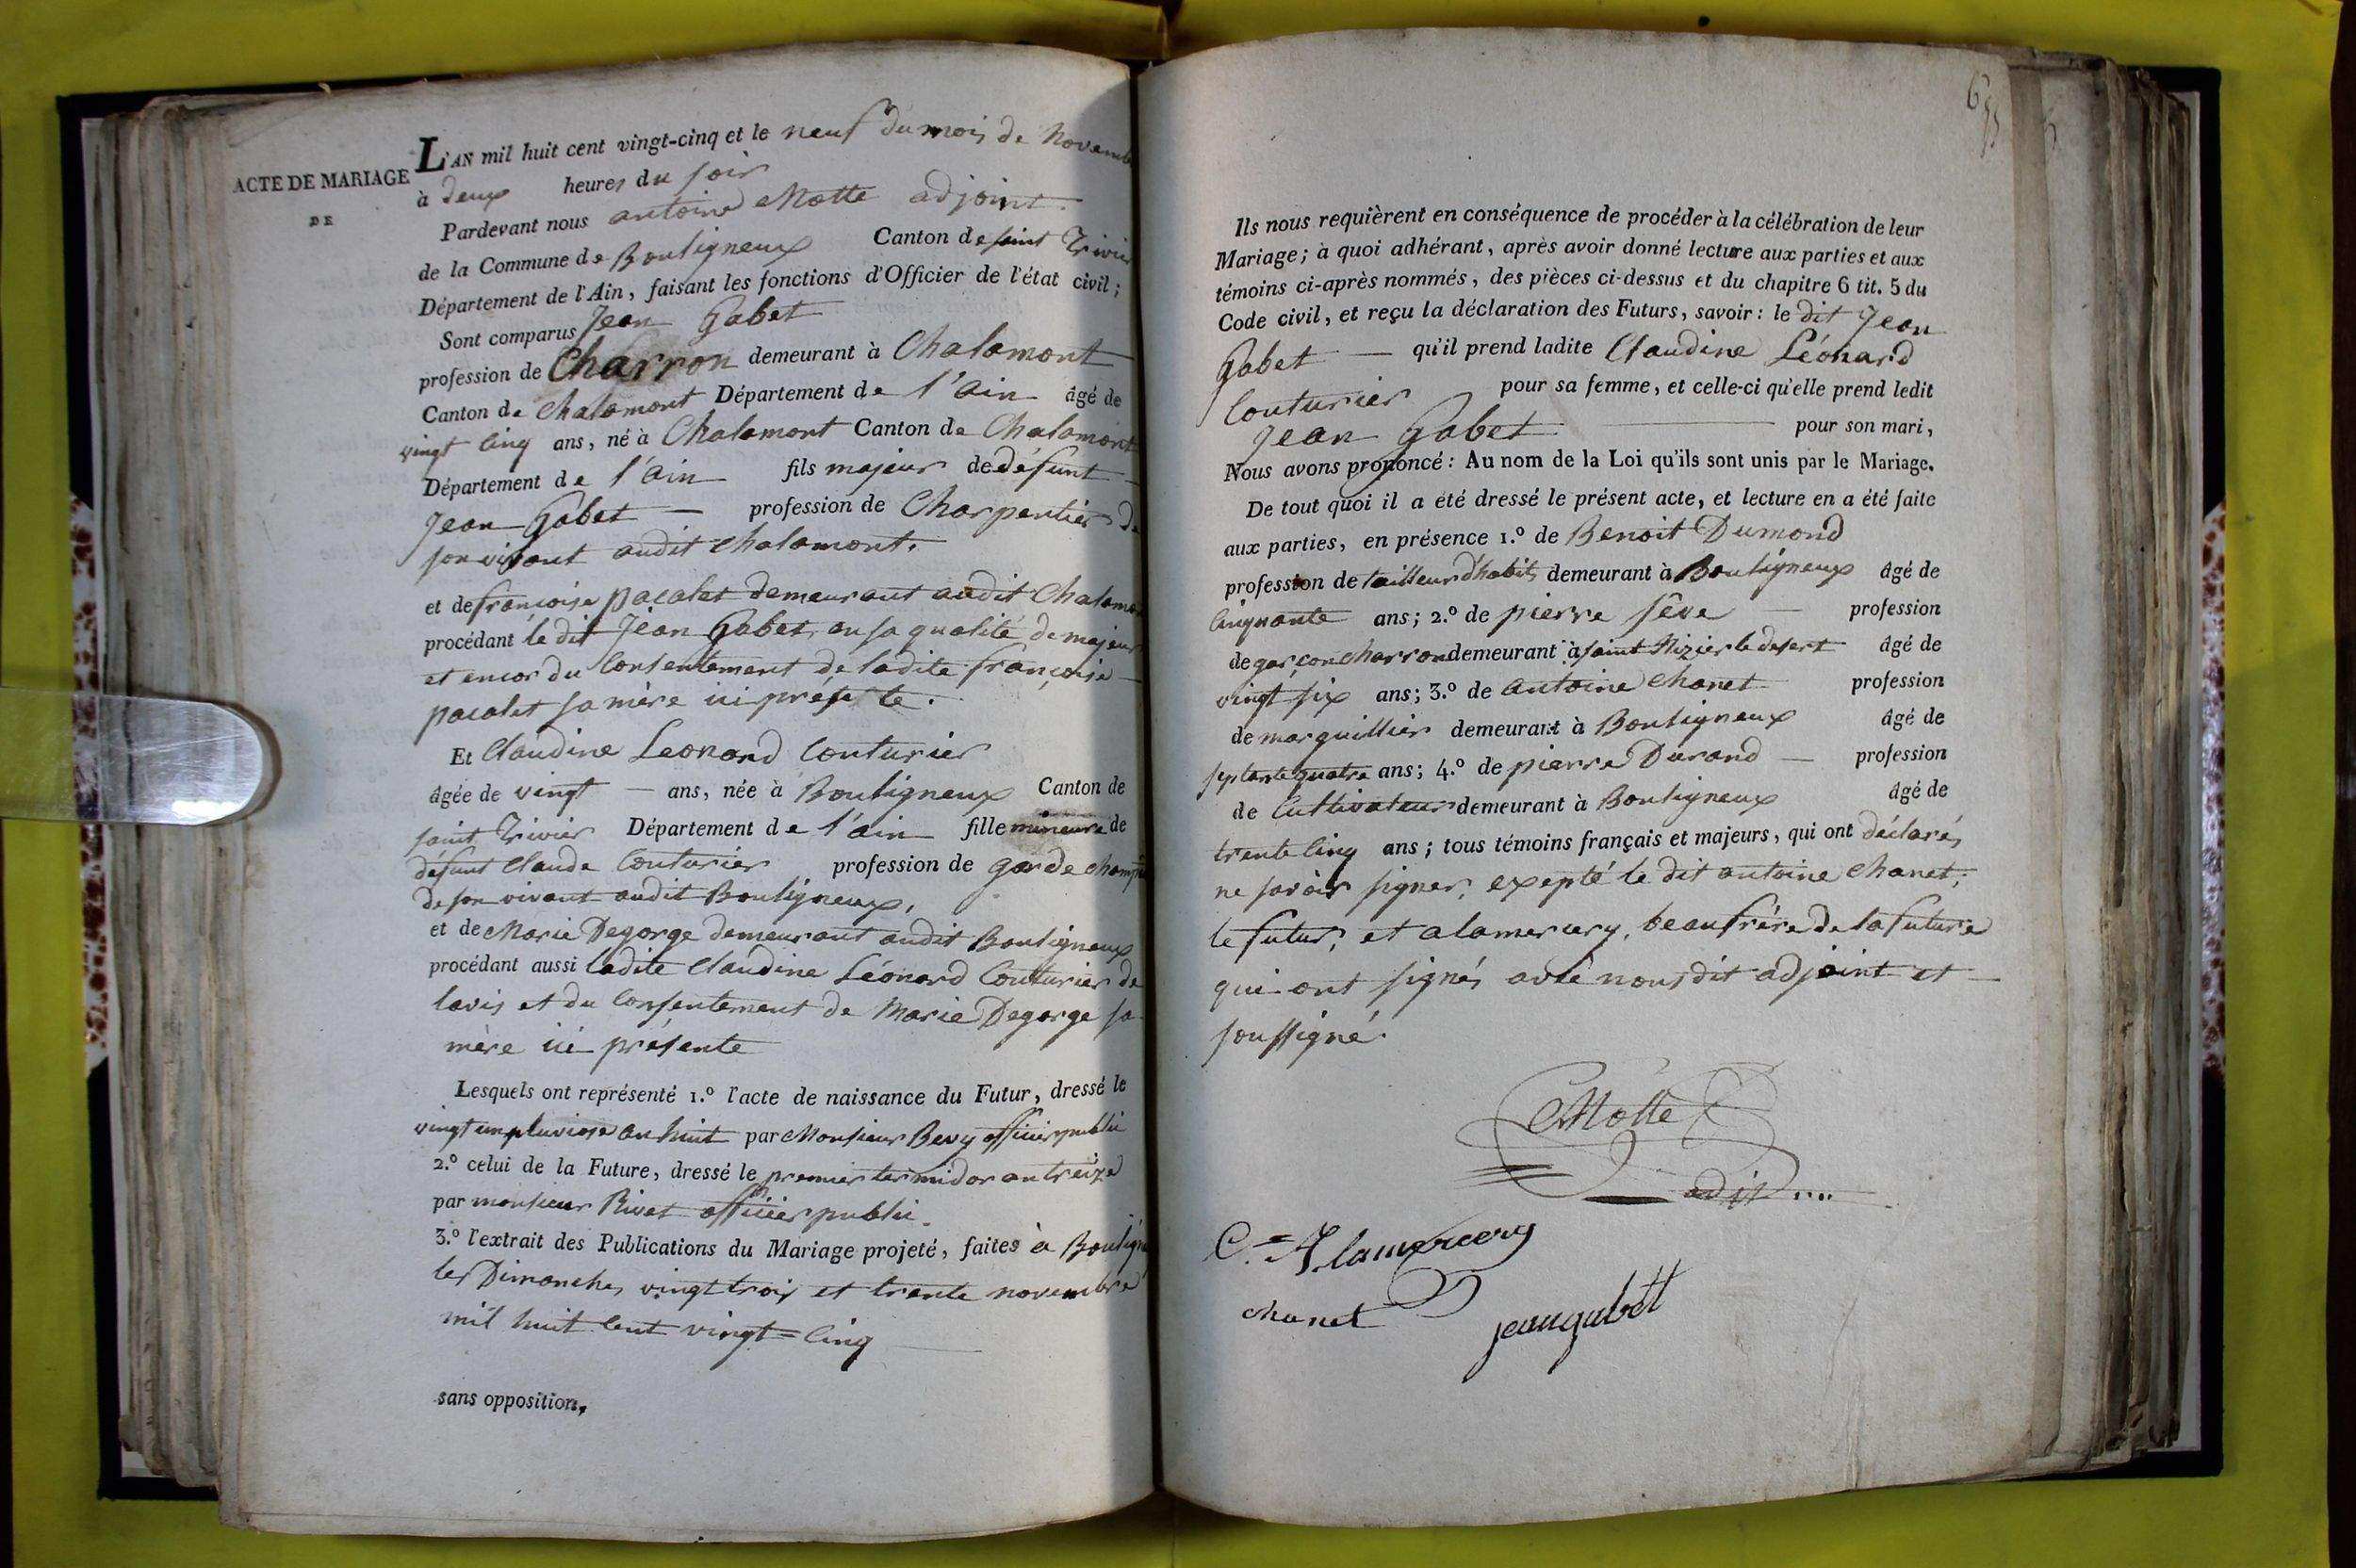 L'AN mil huit cent vingt-cinq et le neuf du mois de Novemb
ACTE DE MARIAGE
DE
à deux heures du soir
Pardevant nous antoine Motte adjoint
de la Commune de Bouligneux Canton de saint Trivier
Département de l'Ain, faisant les fonctions d'Officier de l'état civil;
Sont comparus Jean Gabet
profession de Charron demeurant à Chalamont
Canton de Chalamont Département de l'ain âgé de
vingt cinq ans, né à Chalamont Canton de Chalamont
Département de l'ain fils majeur de défunt
Jean Gabet — profession de Charpentier de
son vivant audit chalamont.
et de françoise pacalet demeurant audit Chalamon
procédant le dit Jean Gabet, en sa qualité de majeur
et encor du Consentement de ladite françoise
pacalet sa mère ici présente.
Et Claudine Leonard Couturier
âgée de vingt — ans, née à Bouligneux Canton de
saint Trivier Département de l'ain fille mineure de
défunt Claude Couturier profession de garde champ
de son vivant audit Bouligneux,
et de Marie Degorge demeurant audit Bouligneux
procédant aussi ladite Claudine Léonard Couturier de
lavis et du Consentement de Marie Degorge sa
mère ici présente
Lesquels ont représenté 1.º l'acte de naissance du Futur, dressé le
vingt un pluviose an huit par Monsieur Bevy officier public
2.º celui de la Future, dressé le premier termidor an treize
par monsieur Rivet officier public.
3.º l'extrait des Publications du Mariage projeté, faites à Boulign
les Dimanches vingt trois et trente novembre
mil huit Cent vingt=Cinq
sans opposition,
Ils nous requièrent en conséquence de procéder à la célébration de leur
Mariage; à quoi adhérant, après avoir donné lecture aux parties et aux
témoins ci-après nommés, des pièces ci-dessus et du chapitre 6 tit. 5 du
Code civil, et reçu la déclaration des Futurs, savoir: le dit Jean
Gabet — qu'il prend ladite Claudine Léonard
Couturier pour sa femme, et celle-ci qu'elle prend ledit
Jean Gabet pour son mari,
Nous avons prononcé: Au nom de la Loi qu'ils sont unis par le Mariage.
De tout quoi il a été dressé le présent acte, et lecture en a été faite
aux parties, en présence 1.º de Benoit Dumond
profession de tailleur d'habits demeurant à Bouligneux âgé de
Cinquante ans; 2.º de pierre Sêve — profession
de garçon charron demeurant à saint Nizier le desert âgé de
vingt six ans; 3.º de Antoine Chanet profession
de marguillier demeurant à Bouligneux âgé de
septante quatre ans; 4.º de pierre Durand — profession
de Cultivateur demeurant à Bouligneux âgé de
trente Cinq ans; tous témoins français et majeurs, qui ont déclarés
ne savoir signer, exepté le dit antoine Chanet,
le futur, et alamercery, beaufrére de la future
qui ont signés avec nous dit adjoint et
soussigné.
Motte
adjt
C.= Alamercery
chanet
jean gabet